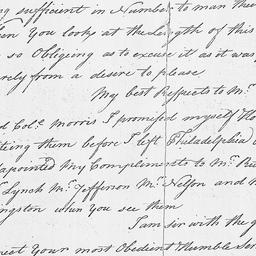 ng sufficient in Number to man the
en You look at the Length of this
so Obliging as to excuse it as it was
rely from a desire to please
My best Respects to Mr.
d Colo. Morris I promised myself the
iting them before I left Philadelphia
apointed My Compliments to Mr.
Lynch Mr. Jefferson Mr. Nelson and
ingston when you see them
I am Sir with the g
Your most Obedient Humble Ser